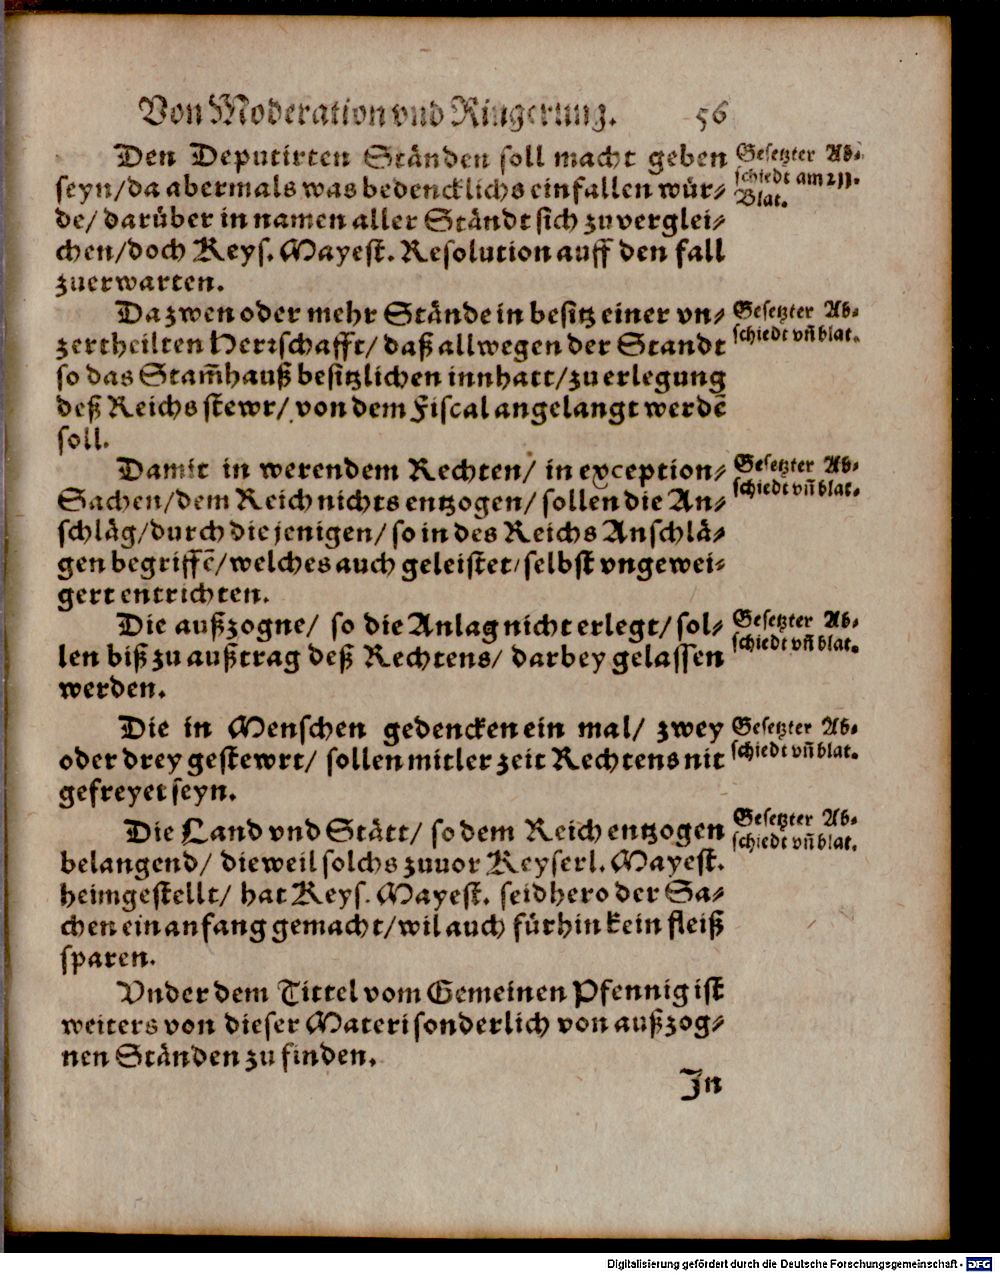 Von Moderation vnd Ringerung. 56
Den Deputirten Ständen soll macht geben
seyn/da abermals was bedencklichs einfallen wür-
de/ darüber in namen aller Ständt sich zuverglei-
chen/doch Keys. Mayest. Resolution auff den fall
zuerwarten.
Gesetzter Ab-
schiedt am 211.
Blat.
Da zwen oder mehr Stände in besitz einer vn-
zertheilten Herrschafft/ daß allwegen der Standt
so das Stam̃hauß besitzlichen innhatt/zu erlegung
deß Reichs stewr/ von dem Fiscal angelangt werdẽ
soll.
Gesetzter Ab-
schiedt vñ blat.
Damit in werendem Rechten/ in exception-
Sachen/dem Reich nichts entzogen/ sollen die An-
schläg/durch die jenigen/ so in des Reichs Anschlä-
gen begriffẽ/welches auch geleistet/selbst vngewei-
gert entrichten.
Gesetzter Ab-
schiedt vñ blat.
Die außzogne/ so die Anlag nicht erlegt/ sol-
len biß zu außtrag deß Rechtens/ darbey gelassen
werden.
Gesetzter Ab-
schiedt vñ blat.
Die in Menschen gedencken ein mal/ zwey
oder drey gestewrt/ sollen mitler zeit Rechtens nit
gefreyet seyn.
Gesetzter Ab-
schiedt vñ blat.
Die Land vnd Stätt/ so dem Reich entzogen
belangend/ dieweil solchs zuuor Keyserl. Mayest.
heimgestellt/ hat Keys. Mayest. seidhero der Sa-
chen ein anfang gemacht/wil auch fürhin kein fleiß
sparen.
Gesetzter Ab-
schiedt vñ blat.
Vnder dem Tittel vom Gemeinen Pfennig ist
weiters von dieser Materi sonderlich von außzog-
nen Ständen zu finden.
In
Digitalisierung gefördert durch die Deutsche Forschungsgemeinschaft - DFG